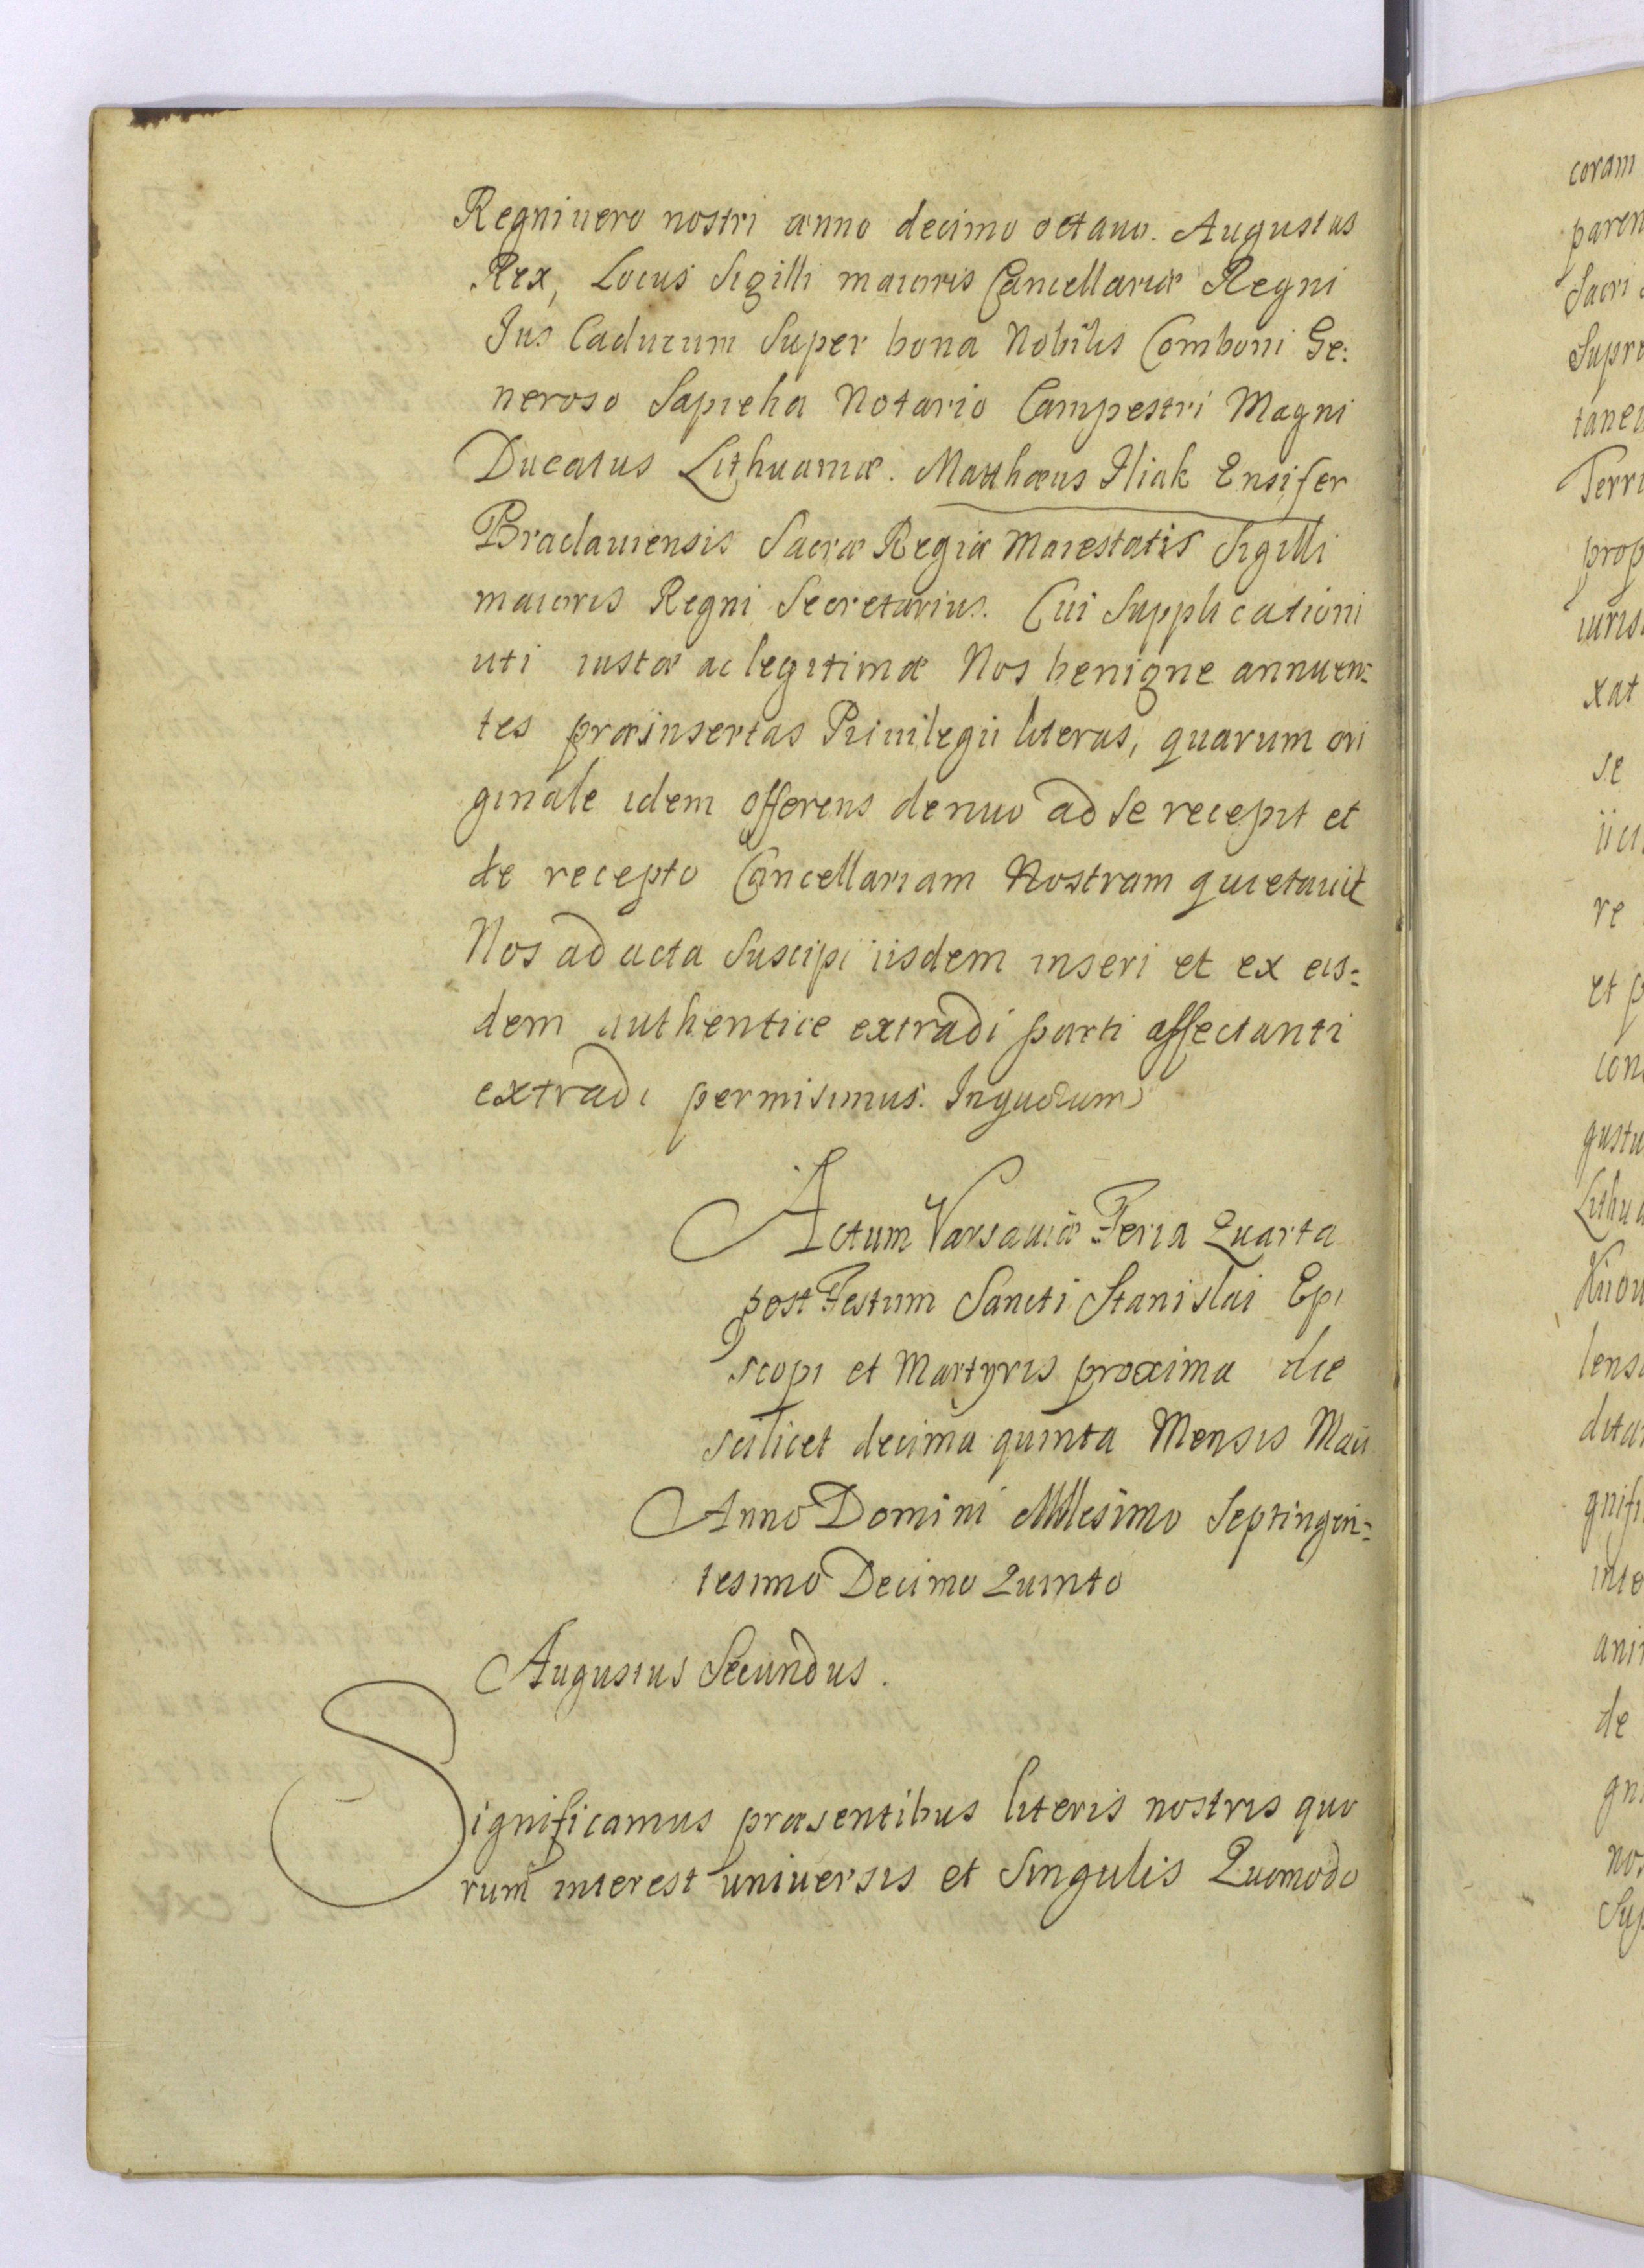 Regni uero nostri anno decimo octauo. Augustus
Rex, Locus Sigilli maioris Cancellariæ Regni
Jus Caducum Super bona Nobilis Comboni Ge:
neroso Sapieha Notario Campestri Magni
Ducatus Lithuaniæ. Matthæus Iliak Ensifer
Braclauiensis Sacræ Regiæ Maiestatis Sigilli
maioris Regni Secretarius. Cui Supplicationi
uti iustæ ac legitimæ Nos benigne annuen=
tes præinsertas Priuilegii literas, quarum ori
ginale idem offerens denuo ad se recepit et
de recepto Cancellariam Nostram quietauit
Nos ad acta Suscipi iisdem inseri et ex eis=
dem authentice extradi parti affectanti
extradi permisimus. Inquorum
Actum Varsauiæ Feria Quarta
post Festum Sancti Stanislai Epi
scopi et Martyris proxima die
scilicet decima quinta Mensis Maii
Anno Domini Millesimo Septingen=
tesimo Decimo Quinto
Augustus Secundus.
Significamus præsentibus literis nostris quo
rum interest uniuersis et Singulis Quomodo
coram
paren
Sacri
Supre
tanei
Terri
prop
iuris
xat
se
re
et p
con
gustu
Lithu
lens
dita
gnifi
inte
ani
de
gn
nos
Sup